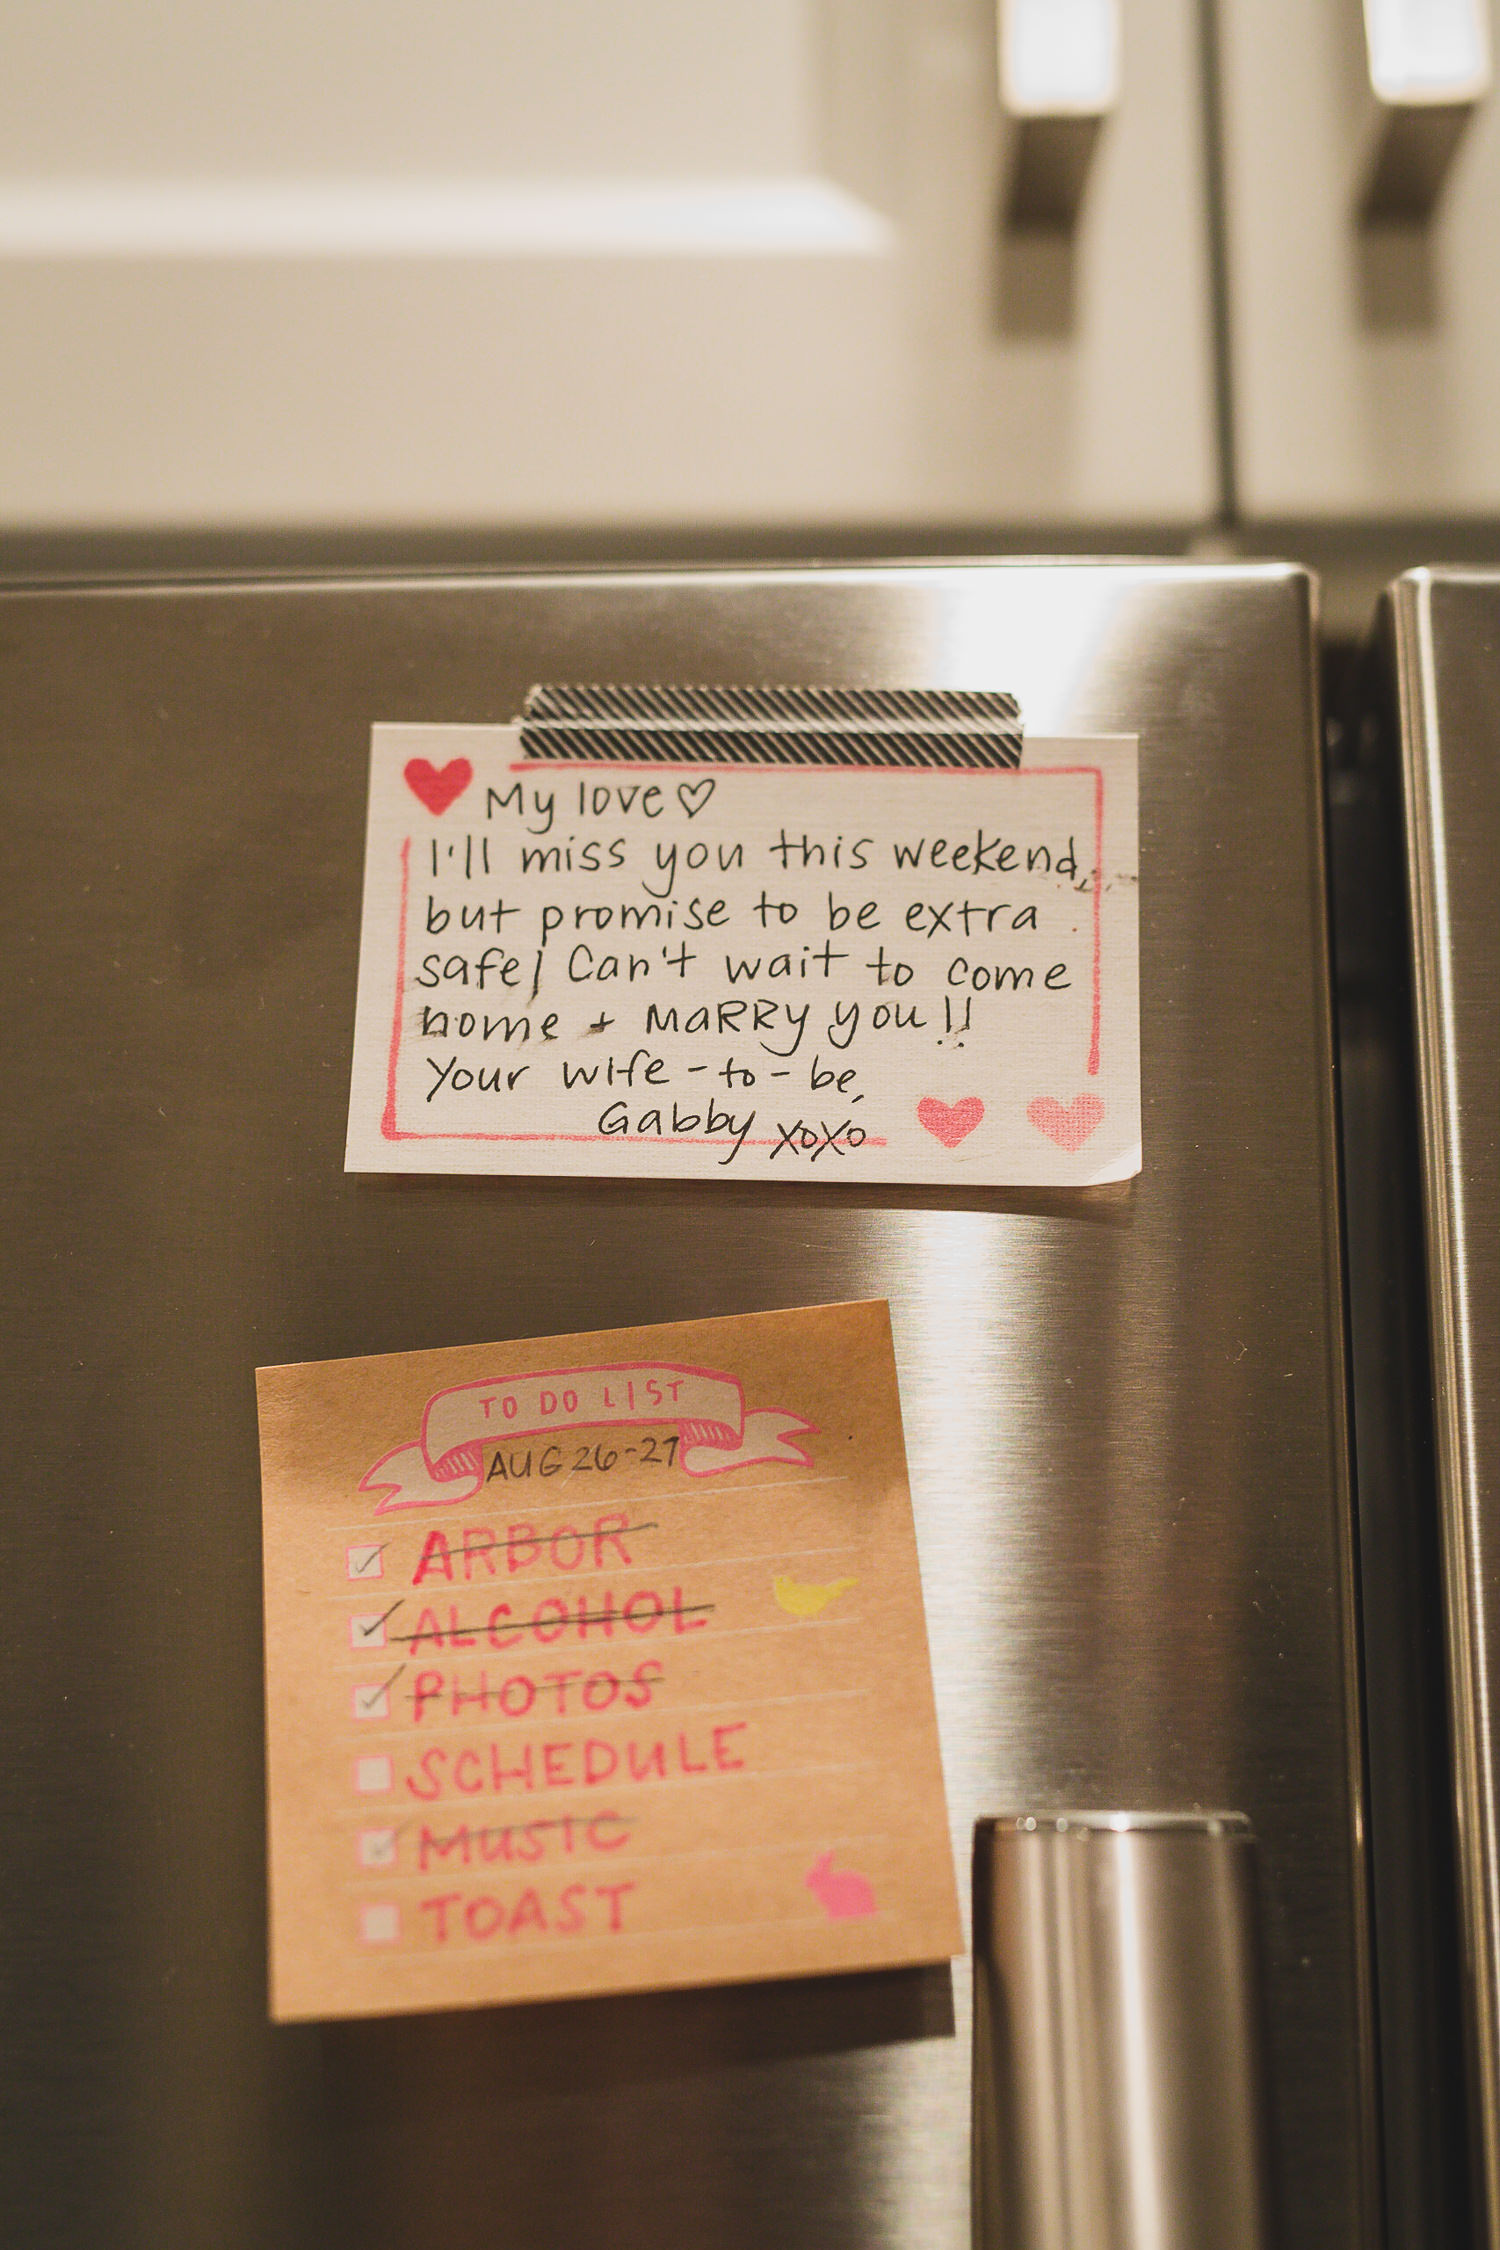 My love ♡
I'll miss you this weekend,
but promise to be extra
safe! Can't wait to come
home + MaRRy you!!
Your wife-to-be,
Gabby xoxo
TO DO LIST
AUG 26-27
ARBOR
ALCOHOL
PHOTOS
SCHEDULE
MUSIC
TOAST